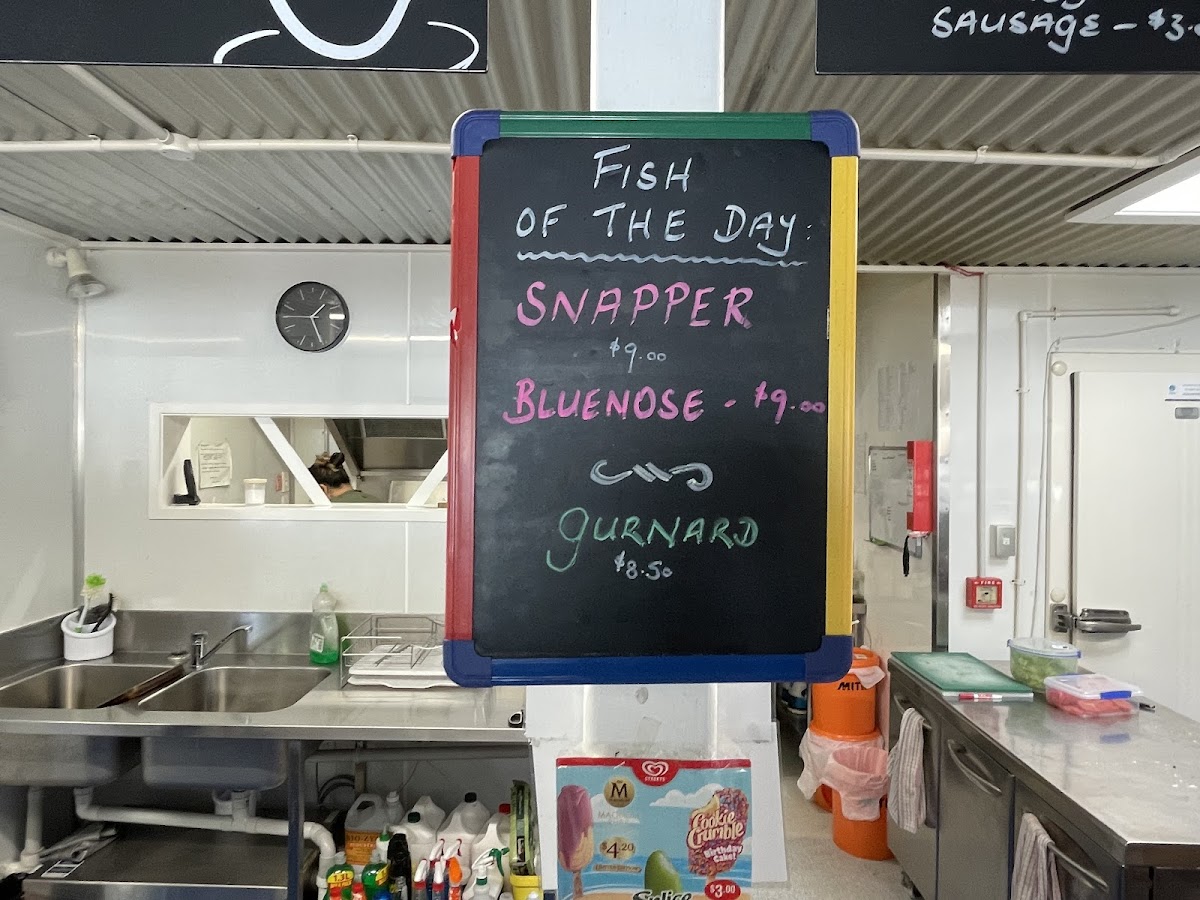 SAUSAGE - $3.
FISH
OF THE DAY:
SNAPPER
$9.00
BLUENOSE - $9.00
GURNARD
$8.50
FIRE
MIT
STREETS
M
$4.20
Cookie
Crumble
Birthday
Cake!
$3.00
Splice